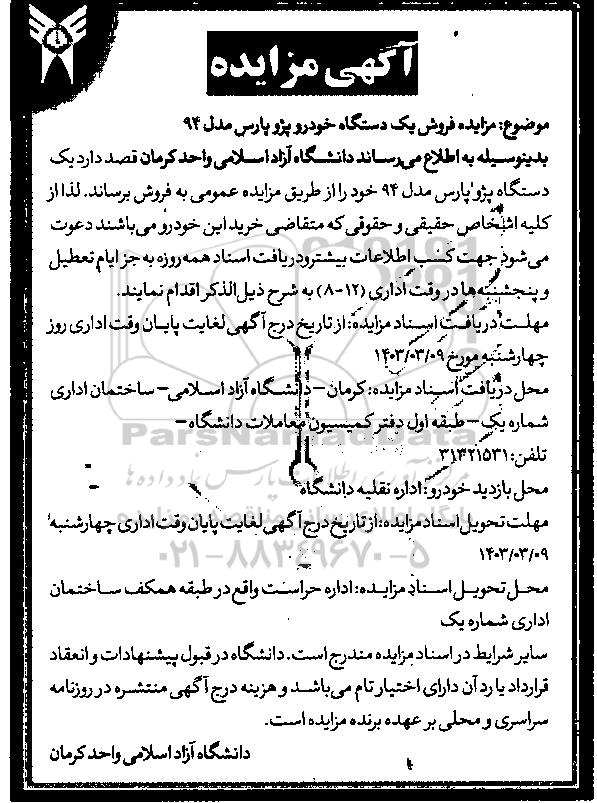 آگهی مزایده
موضوع: مزایده فروش یک دستگاه خودرو پژو پارس مدل ۹۴
بدینوسیله به اطلاع می‌رساند دانشگاه آزاد اسلامی واحد کرمان قصد دارد یک
دستگاه پژو پارس مدل ۹۴ خود را از طریق مزایده عمومی به فروش برساند. لذا از
کلیه اشخاص حقیقی و حقوقی که متقاضی خرید این خودرو می‌باشند دعوت
می‌شود جهت کسب اطلاعات بیشتر و دریافت اسناد همه روزه به جز ایام تعطیل
و پنجشنبه‌ها در وقت اداری (۱۲-۸) به شرح ذیل‌الذکر اقدام نمایند.
مهلت دریافت اسناد مزایده: از تاریخ درج آگهی لغایت پایان وقت اداری روز
چهارشنبه مورخ ۱۴۰۳/۰۳/۰۹
محل دریافت اسناد مزایده: کرمان - دانشگاه آزاد اسلامی - ساختمان اداری
شماره یک - طبقه اول دفتر کمیسیون معاملات دانشگاه -
ParsNamadData
تلفن: ۳۱۳۲۱۵۳۱
محل بازدید خودرو: اداره نقلیه دانشگاه
مهلت تحویل اسناد مزایده: از تاریخ درج آگهی لغایت پایان وقت اداری چهارشنبه
۱۴۰۳/۰۳/۰۹
۰۲۱-۸۸۳۴۹۶۷۰-۵
محل تحویل اسناد مزایده: اداره حراست واقع در طبقه همکف ساختمان
اداری شماره یک
سایر شرایط در اسناد مزایده مندرج است. دانشگاه در قبول پیشنهادات و انعقاد
قرارداد یا رد آن دارای اختیار تام می‌باشد و هزینه درج آگهی منتشره در روزنامه
سراسری و محلی بر عهده برنده مزایده است.
دانشگاه آزاد اسلامی واحد کرمان